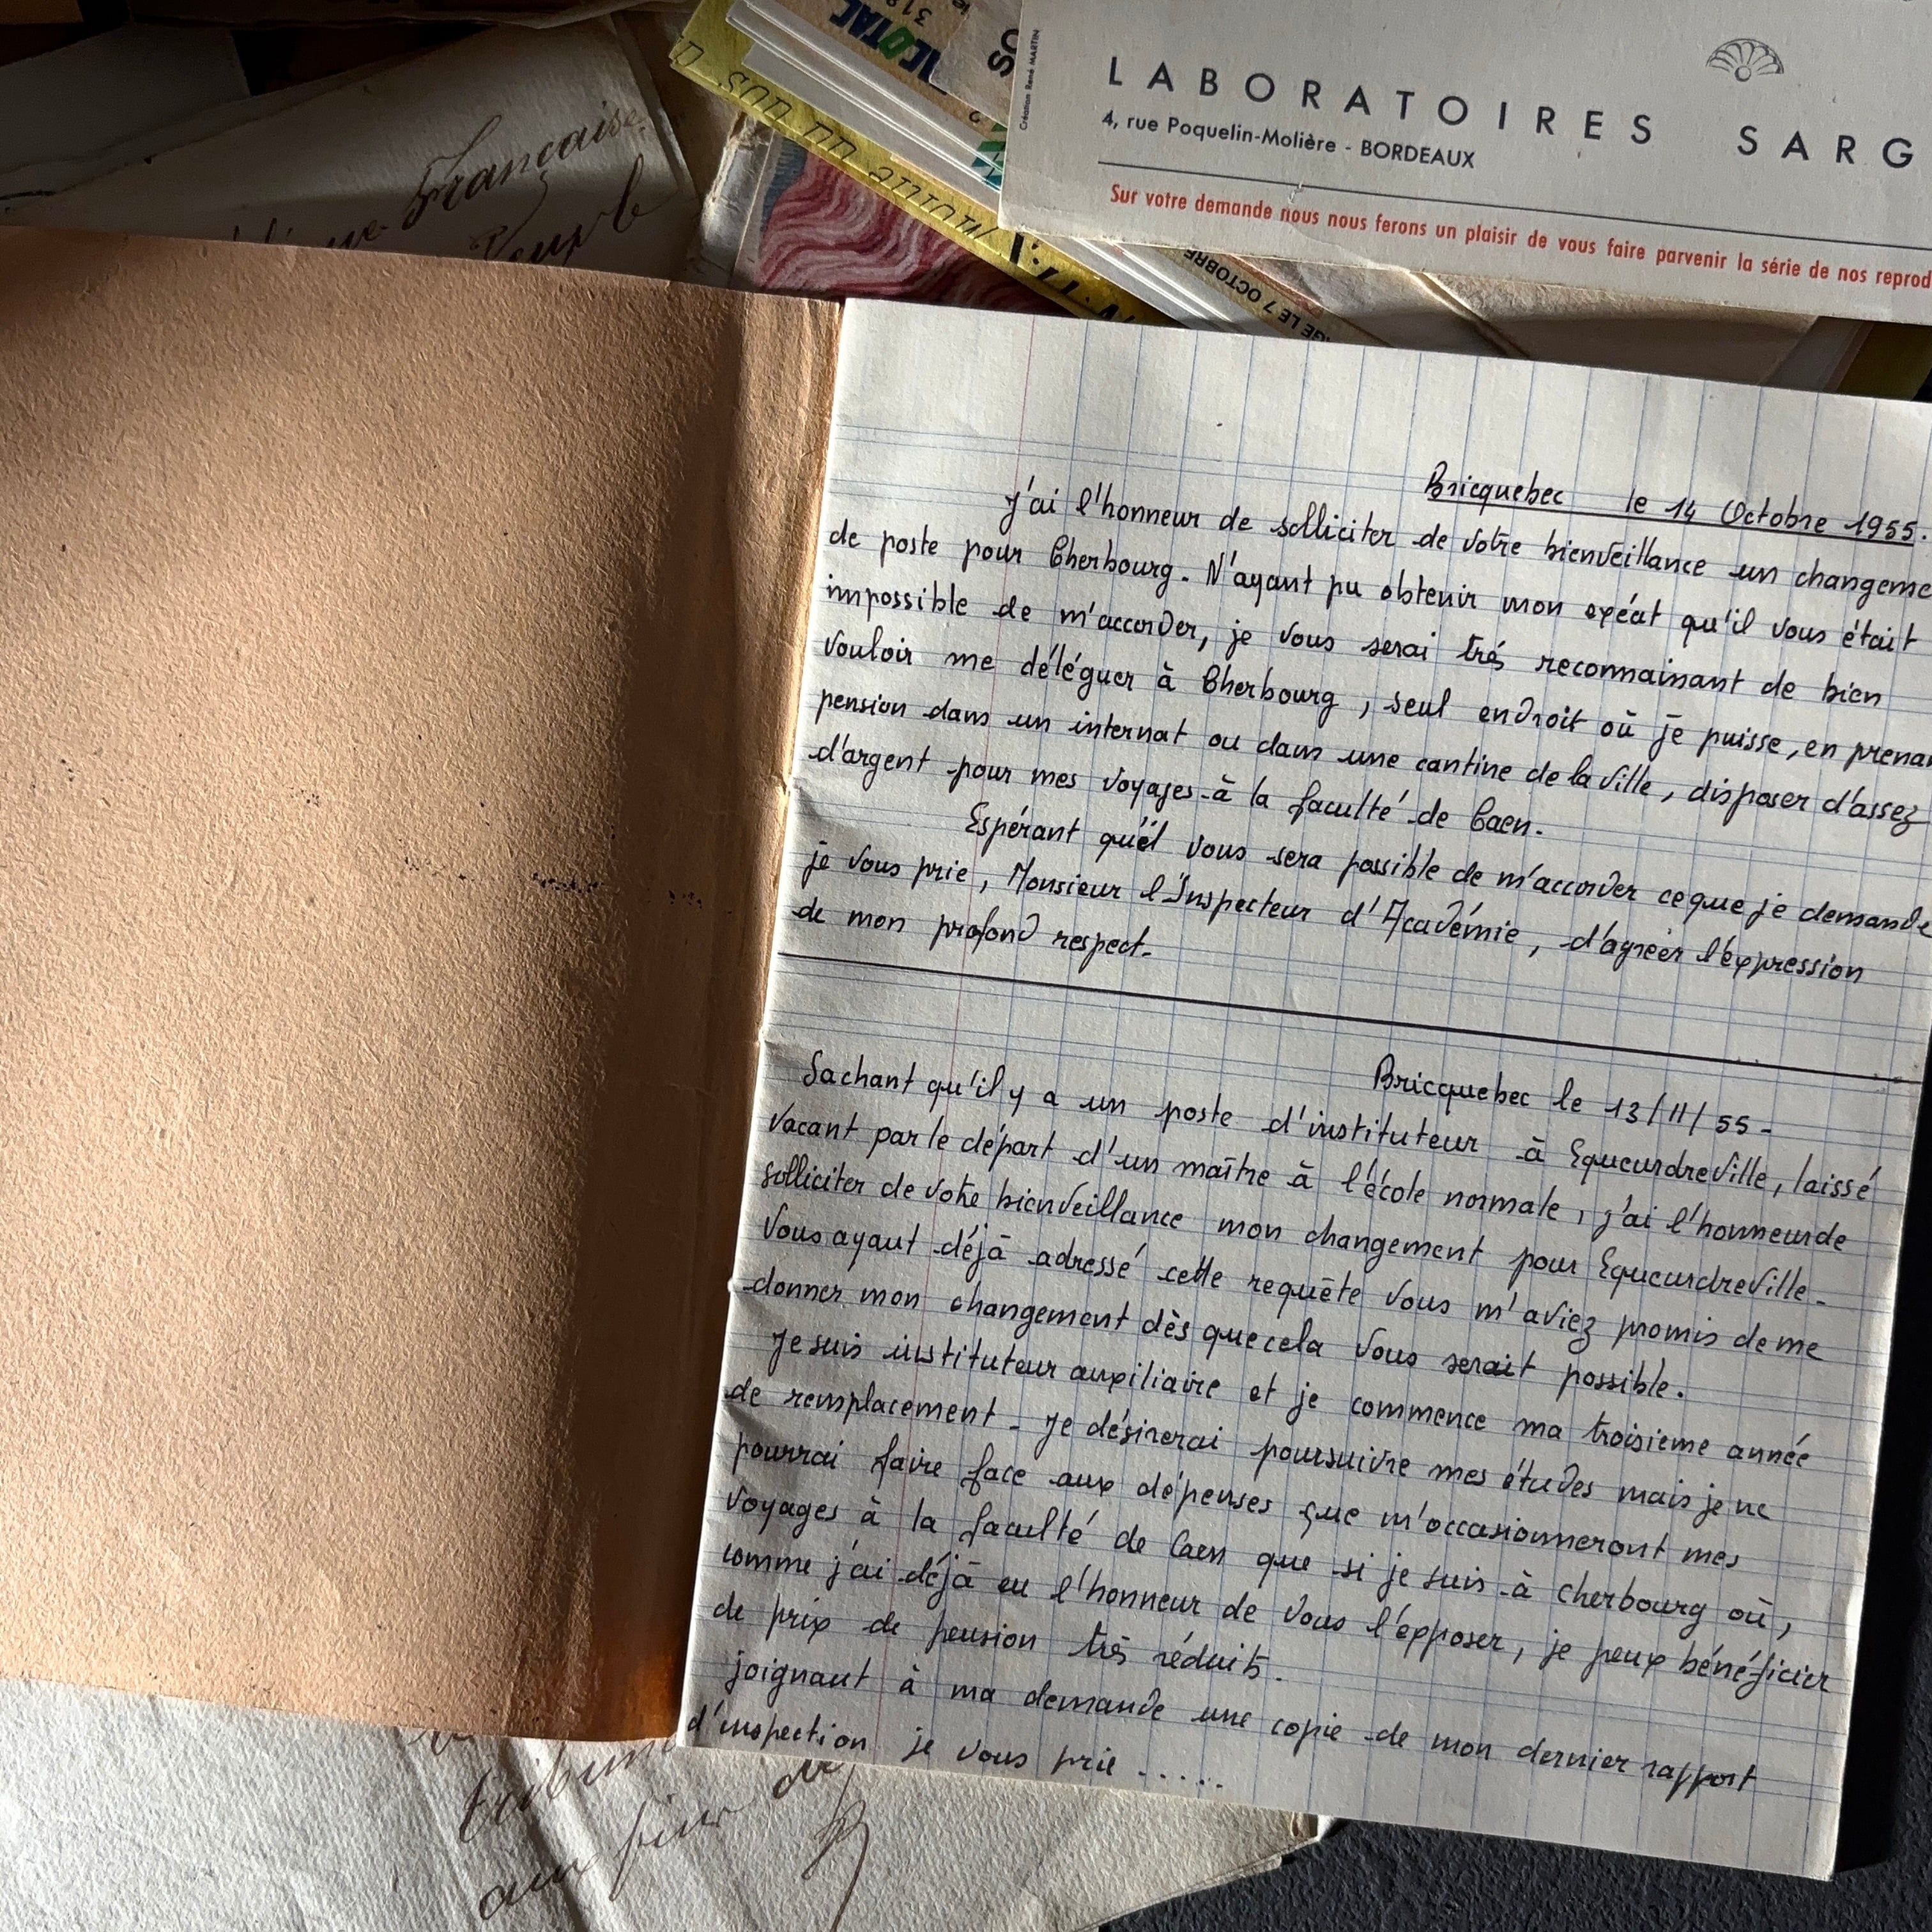 Française
ICOTAC
318
Motte du us
GE LE 7 OCTOBRE
Création René MARTIN
LABORATOIRES SARG
4, rue Poquelin-Molière - BORDEAUX
Sur votre demande nous nous ferons un plaisir de vous faire parvenir la série de nos reprod
Bricquebec le 14 Octobre 1955.
J'ai l'honneur de solliciter de votre bienveillance un changeme
de poste pour Cherbourg. N'ayant pu obtenir mon exéat qu'il vous était
impossible de m'accorder, je vous serai trés reconnaissant de bien
vouloir me déléguer à Cherbourg, seul endroit où je puisse, en prenan
pension dans un internat ou dans une cantine de la ville, disposer d'assez
d'argent pour mes voyages à la faculté de Caen.
Espérant qu'il vous sera possible de m'accorder ce que je demande
je vous prie, Monsieur l'Inspecteur d'Académie, d'agréer l'expression
de mon profond respect.
Bricquebec le 13/11/55-
Sachant qu'il y a un poste d'instituteur à Equeurdreville, laissé
vacant par le départ d'un maître à l'école normale, j'ai l'honneur de
solliciter de votre bienveillance mon changement pour Equeurdreville.
Vous ayant déjà adressé cette requête vous m'aviez promis de me
donner mon changement dès que cela vous serait possible.
Je suis instituteur auxiliaire et je commence ma troisieme année
de remplacement. Je désirerai poursuivre mes études mais je ne
pourrai faire face aux dépenses que m'occasionneront mes
voyages à la faculté de Caen que si je suis à Cherbourg où,
comme j'ai déjà eu l'honneur de vous l'exposer, je peux bénéficier
de prix de pension très réduits.
joignant à ma demande une copie de mon dernier rapport
d'inspection je vous prie .....
tribun
de
aux fins